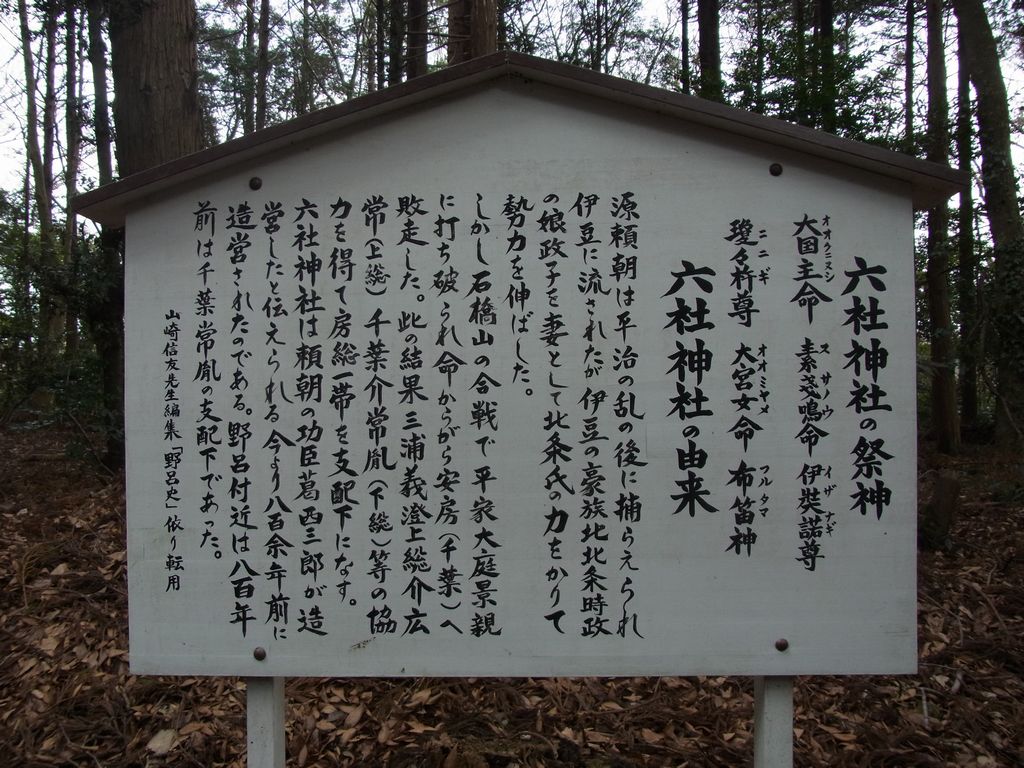 六社神社の祭神
オオクニヌシ スサノウ イザナギ
大国主命 素戔鳴命 伊奘諾尊
ニニギ オオミヤメ フルタマ
瓊々杵尊 大宮女命 布笛神
六社神社の由来
源頼朝は平治の乱の後に捕らえられ
伊豆に流されたが伊豆の豪族北北条時政
の娘政子を妻として北条氏の力をかりて
勢力を伸ばした。
しかし石橋山の合戦で平家大庭景親
に打ち破られ命からがら安房(千葉)へ
敗走した。此の結果三浦義澄上総介広
常(上総)千葉介常胤(下総)等の協
力を得て房総一帯を支配下になす。
六社神社は頼朝の功臣葛西三郎が造
営したと伝えられる今より八百余年前に
造営されたのである。野呂付近は八百年
前は千葉常胤の支配下であった。
山崎信友先生編集「野呂史」依り転用